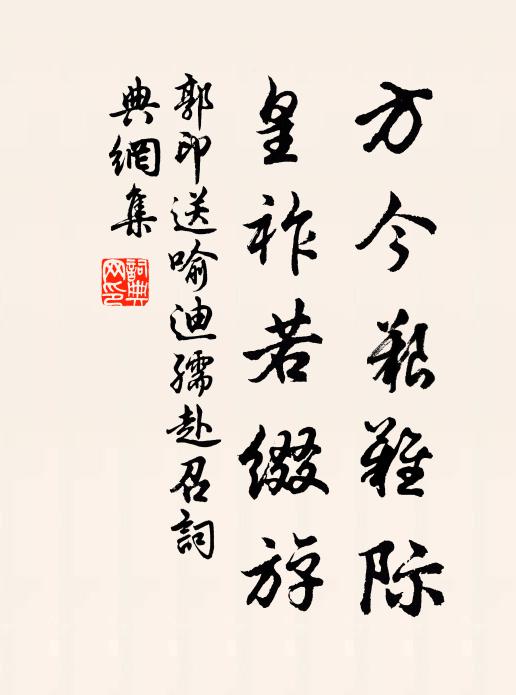 方今艱難际
皇祚若綴斿
郭印送喻迪孺赴召詞
典網集
詞典網印